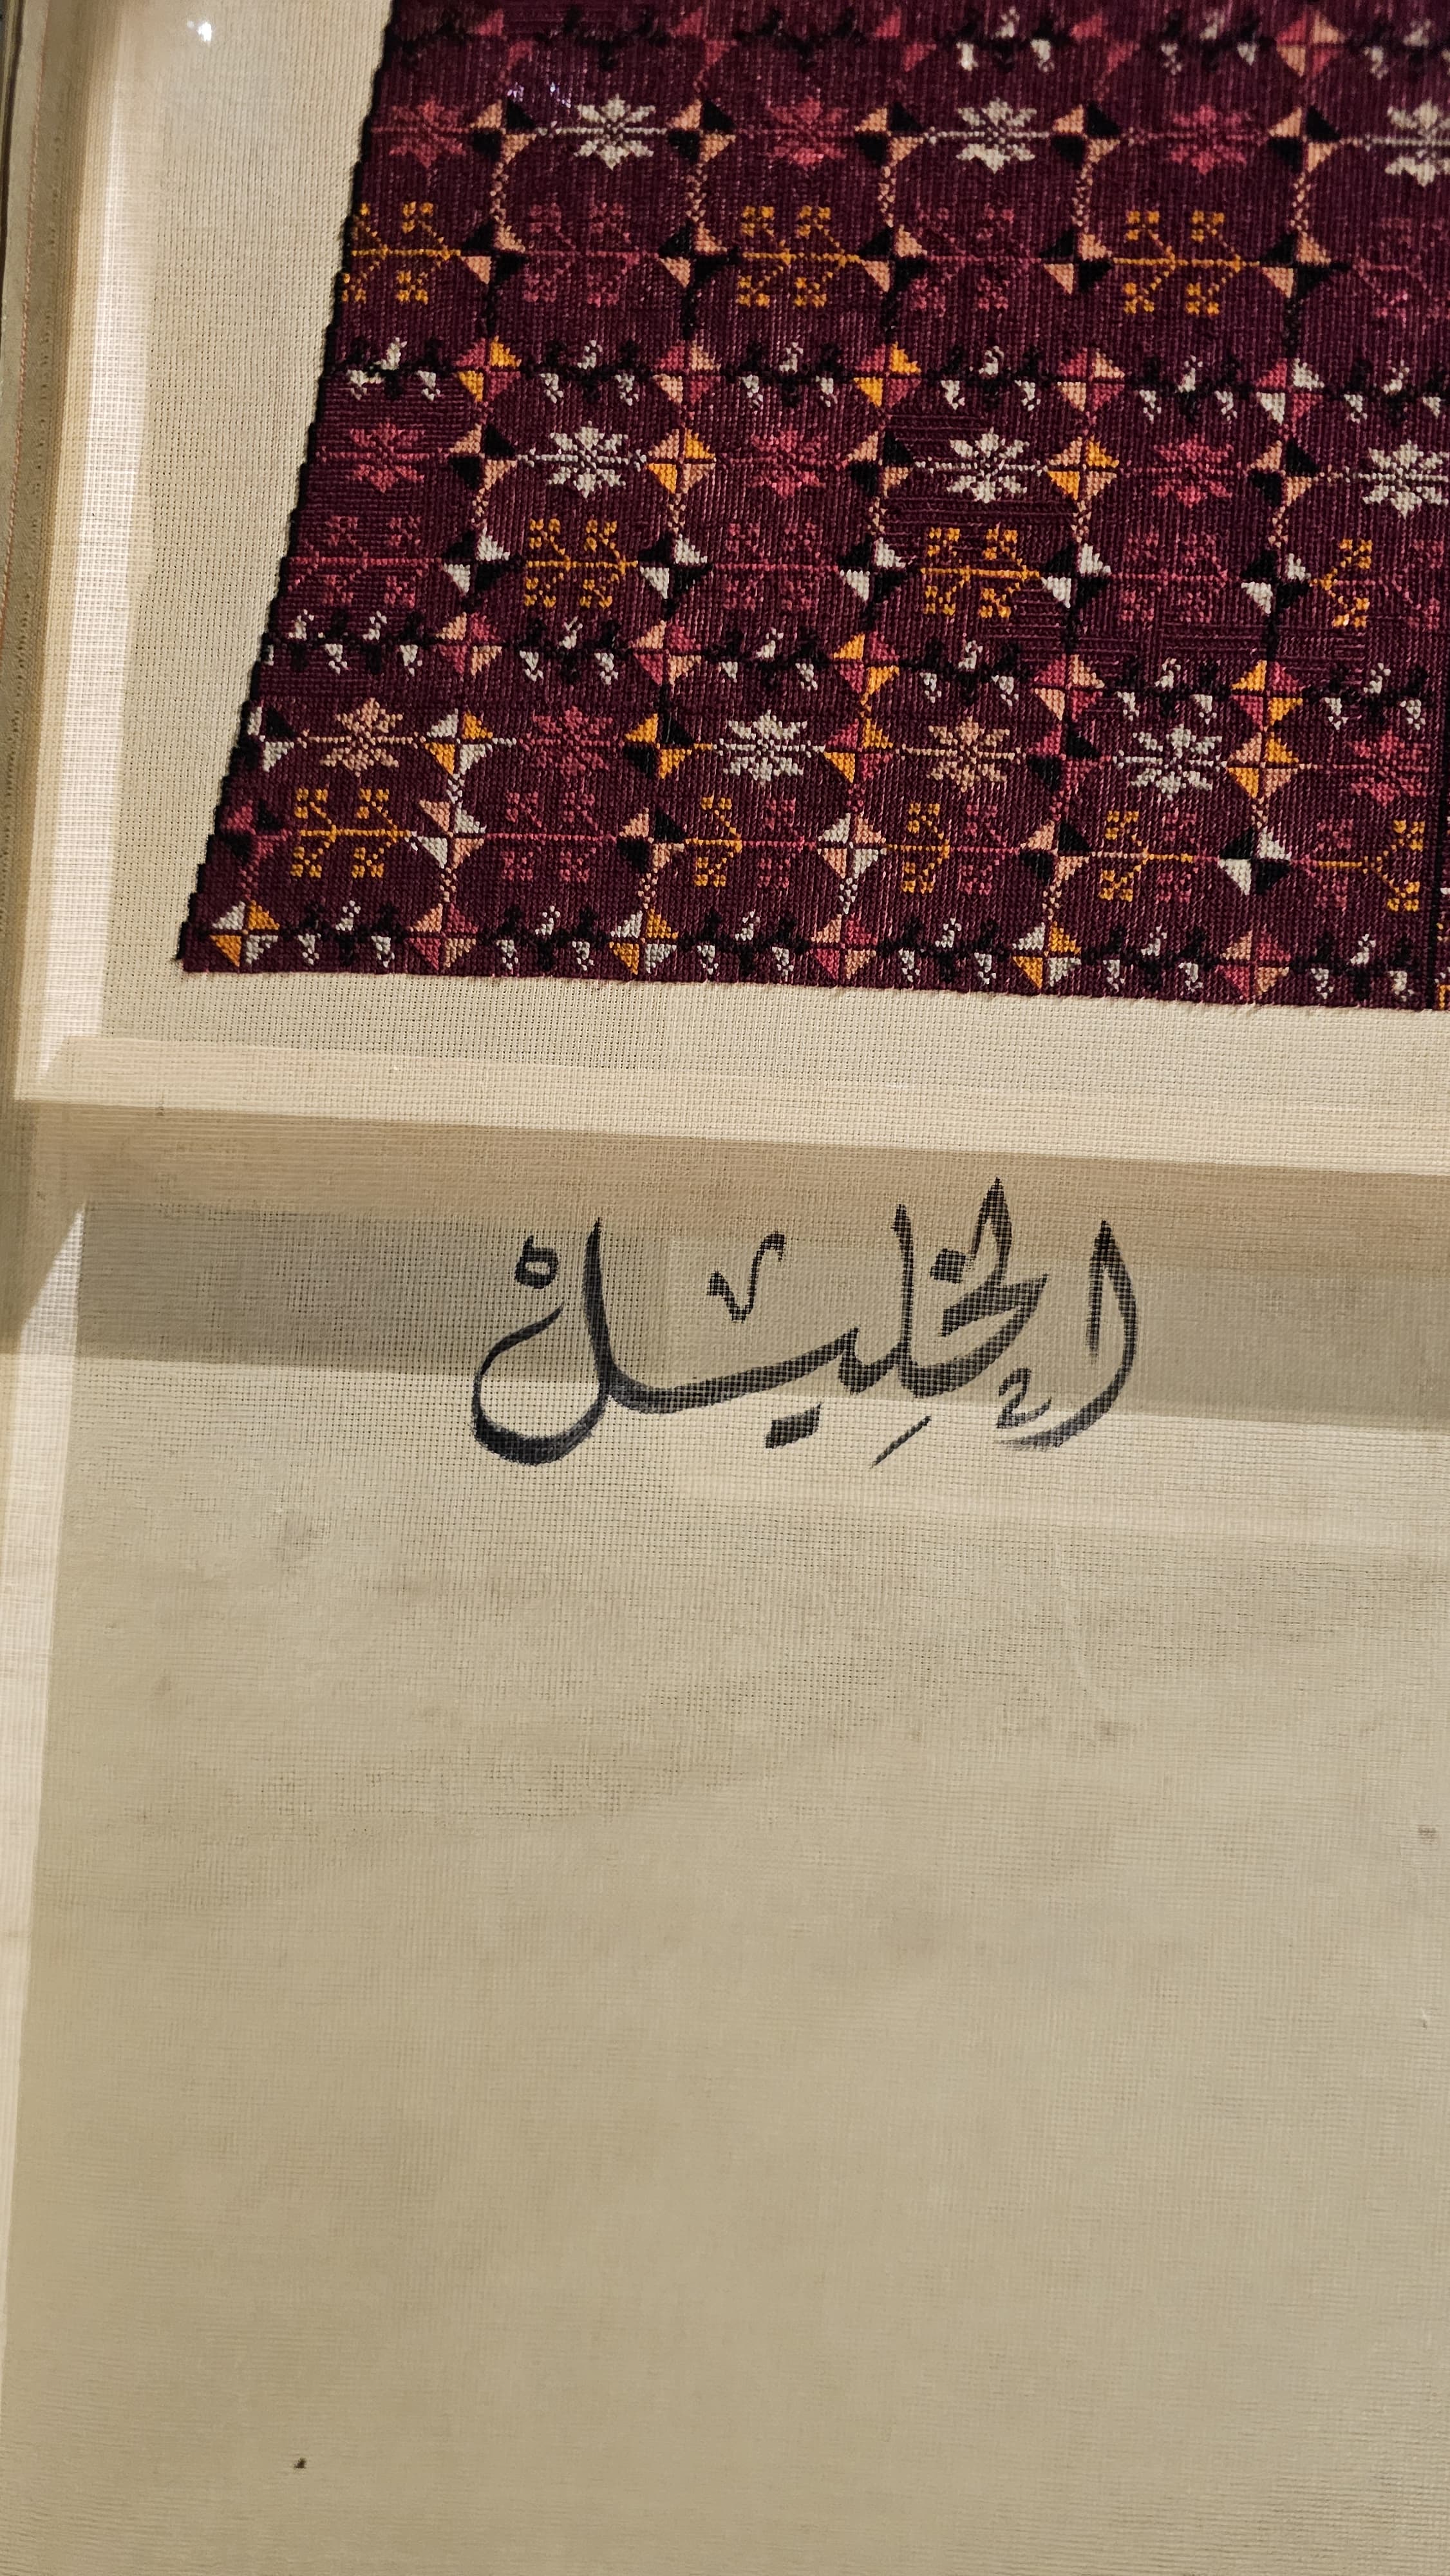 الخلِيلْ